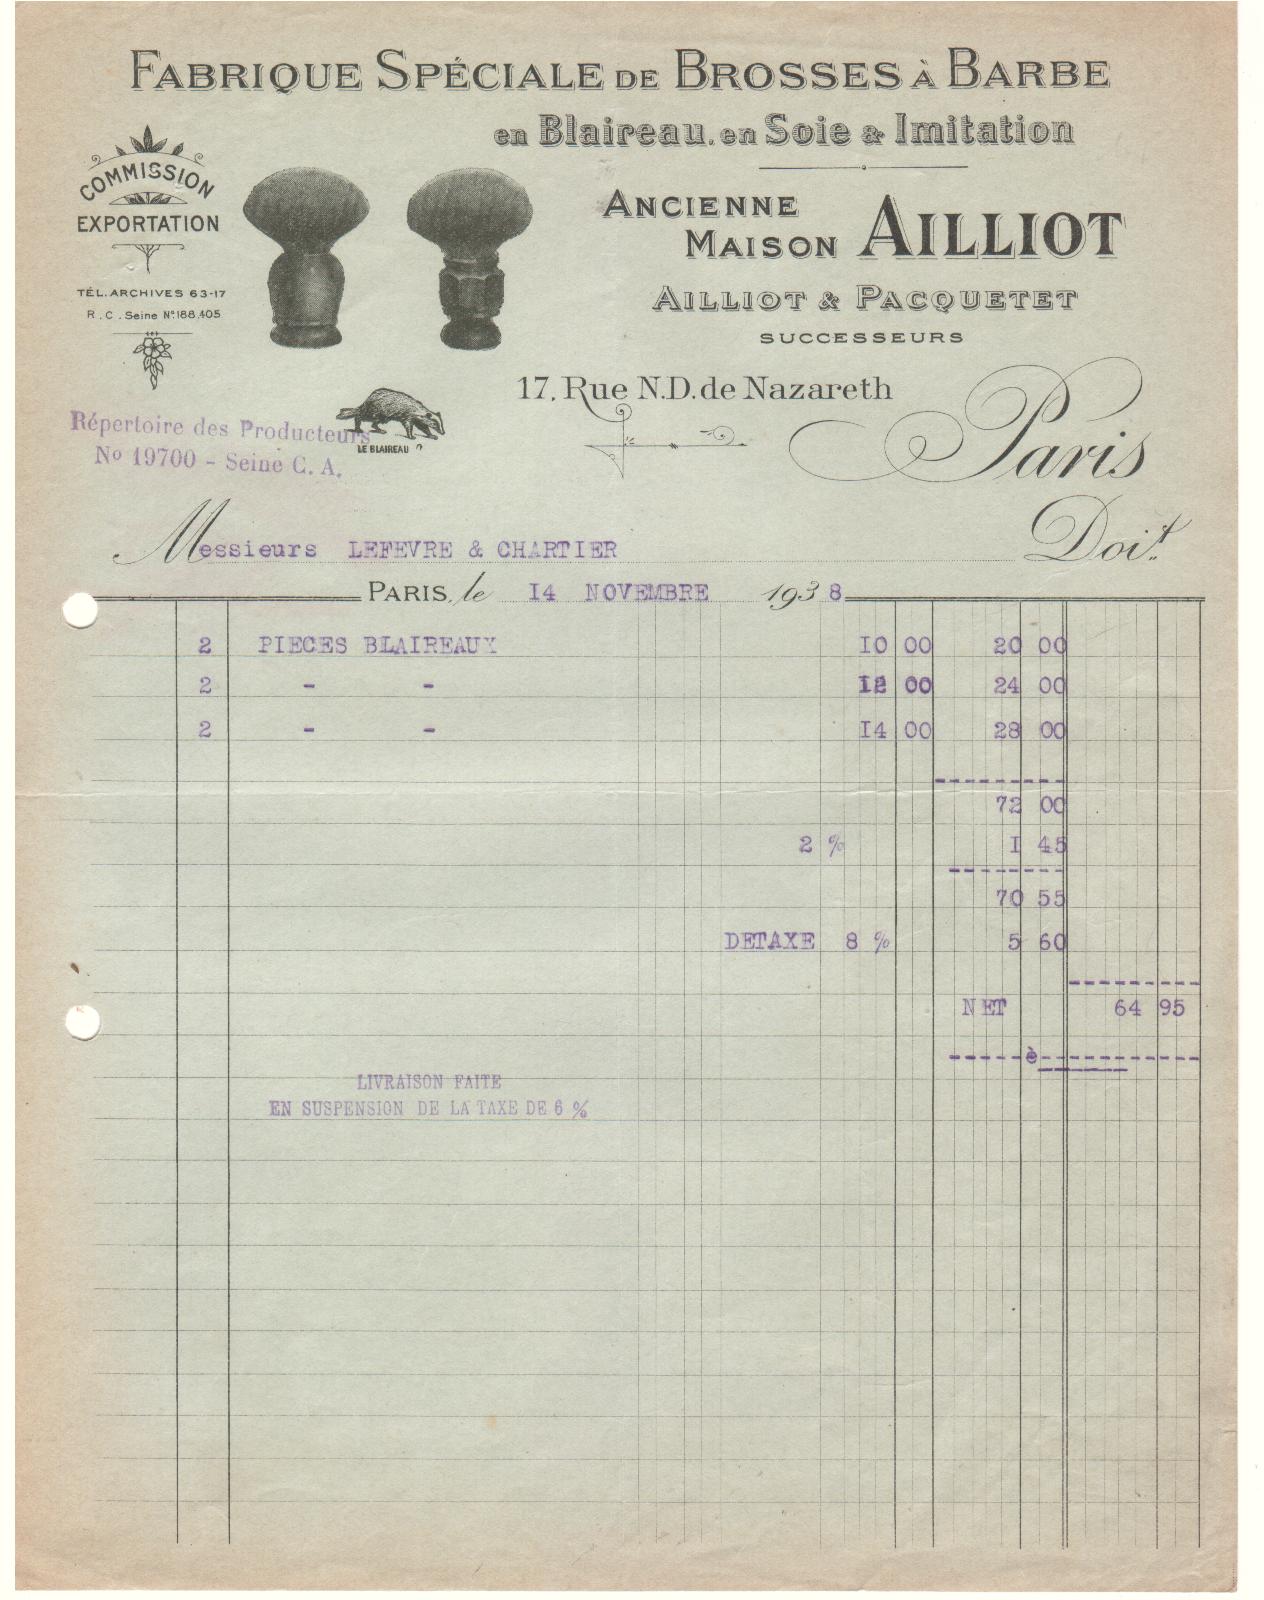 FABRIQUE SPÉCIALE DE BROSSES À BARBE
en Blaireau, en Soie & Imitation
COMMISSION
EXPORTATION
TÉL. ARCHIVES 63-17
R.C. Seine No. 188.405
ANCIENNE
MAISON AILLIOT
AILLIOT & PACQUETET
SUCCESSEURS
17, Rue N.D. de Nazareth
Paris
Répertoire des Producteurs
No 19700 - Seine C. A.
LE BLAIREAU
Messieurs LEFEVRE & CHARTIER Doit
PARIS, le 14 NOVEMBRE 1938
2 PIECES BLAIREAUX 10 00 20 00
2 - - 12 00 24 00
2 - - 14 00 28 00
72 00
2 % 1 45
70 55
DETAXE 8 % 5 60
NET 64 95
è
LIVRAISON FAITE
EN SUSPENSION DE LA TAXE DE 6 %